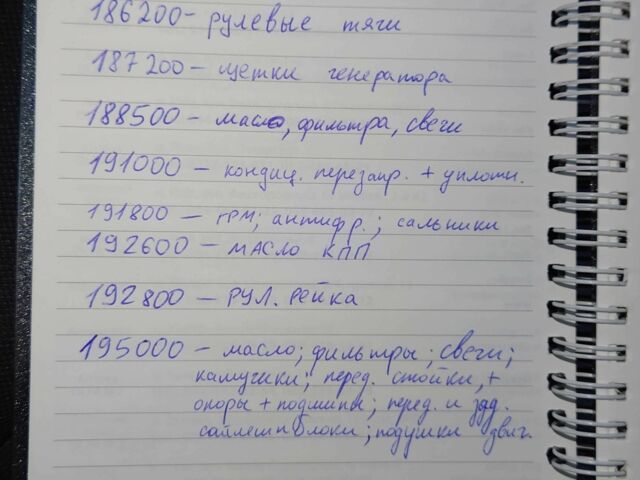 186200 - рулевые тяги
187200 - щетки генератора
188500 - масло, фильтра, свечи
191000 - кондиц. перезапр. + уплотн.
191800 - ГРМ; антифр.; сальники
192600 - МАСЛО КПП
192800 - РУЛ. РЕЙКА
195000 - масло; фильтры; свечи;
перед. стойки, +
опоры + подшипы; перед. и зад.
блоки; подушки двиг.